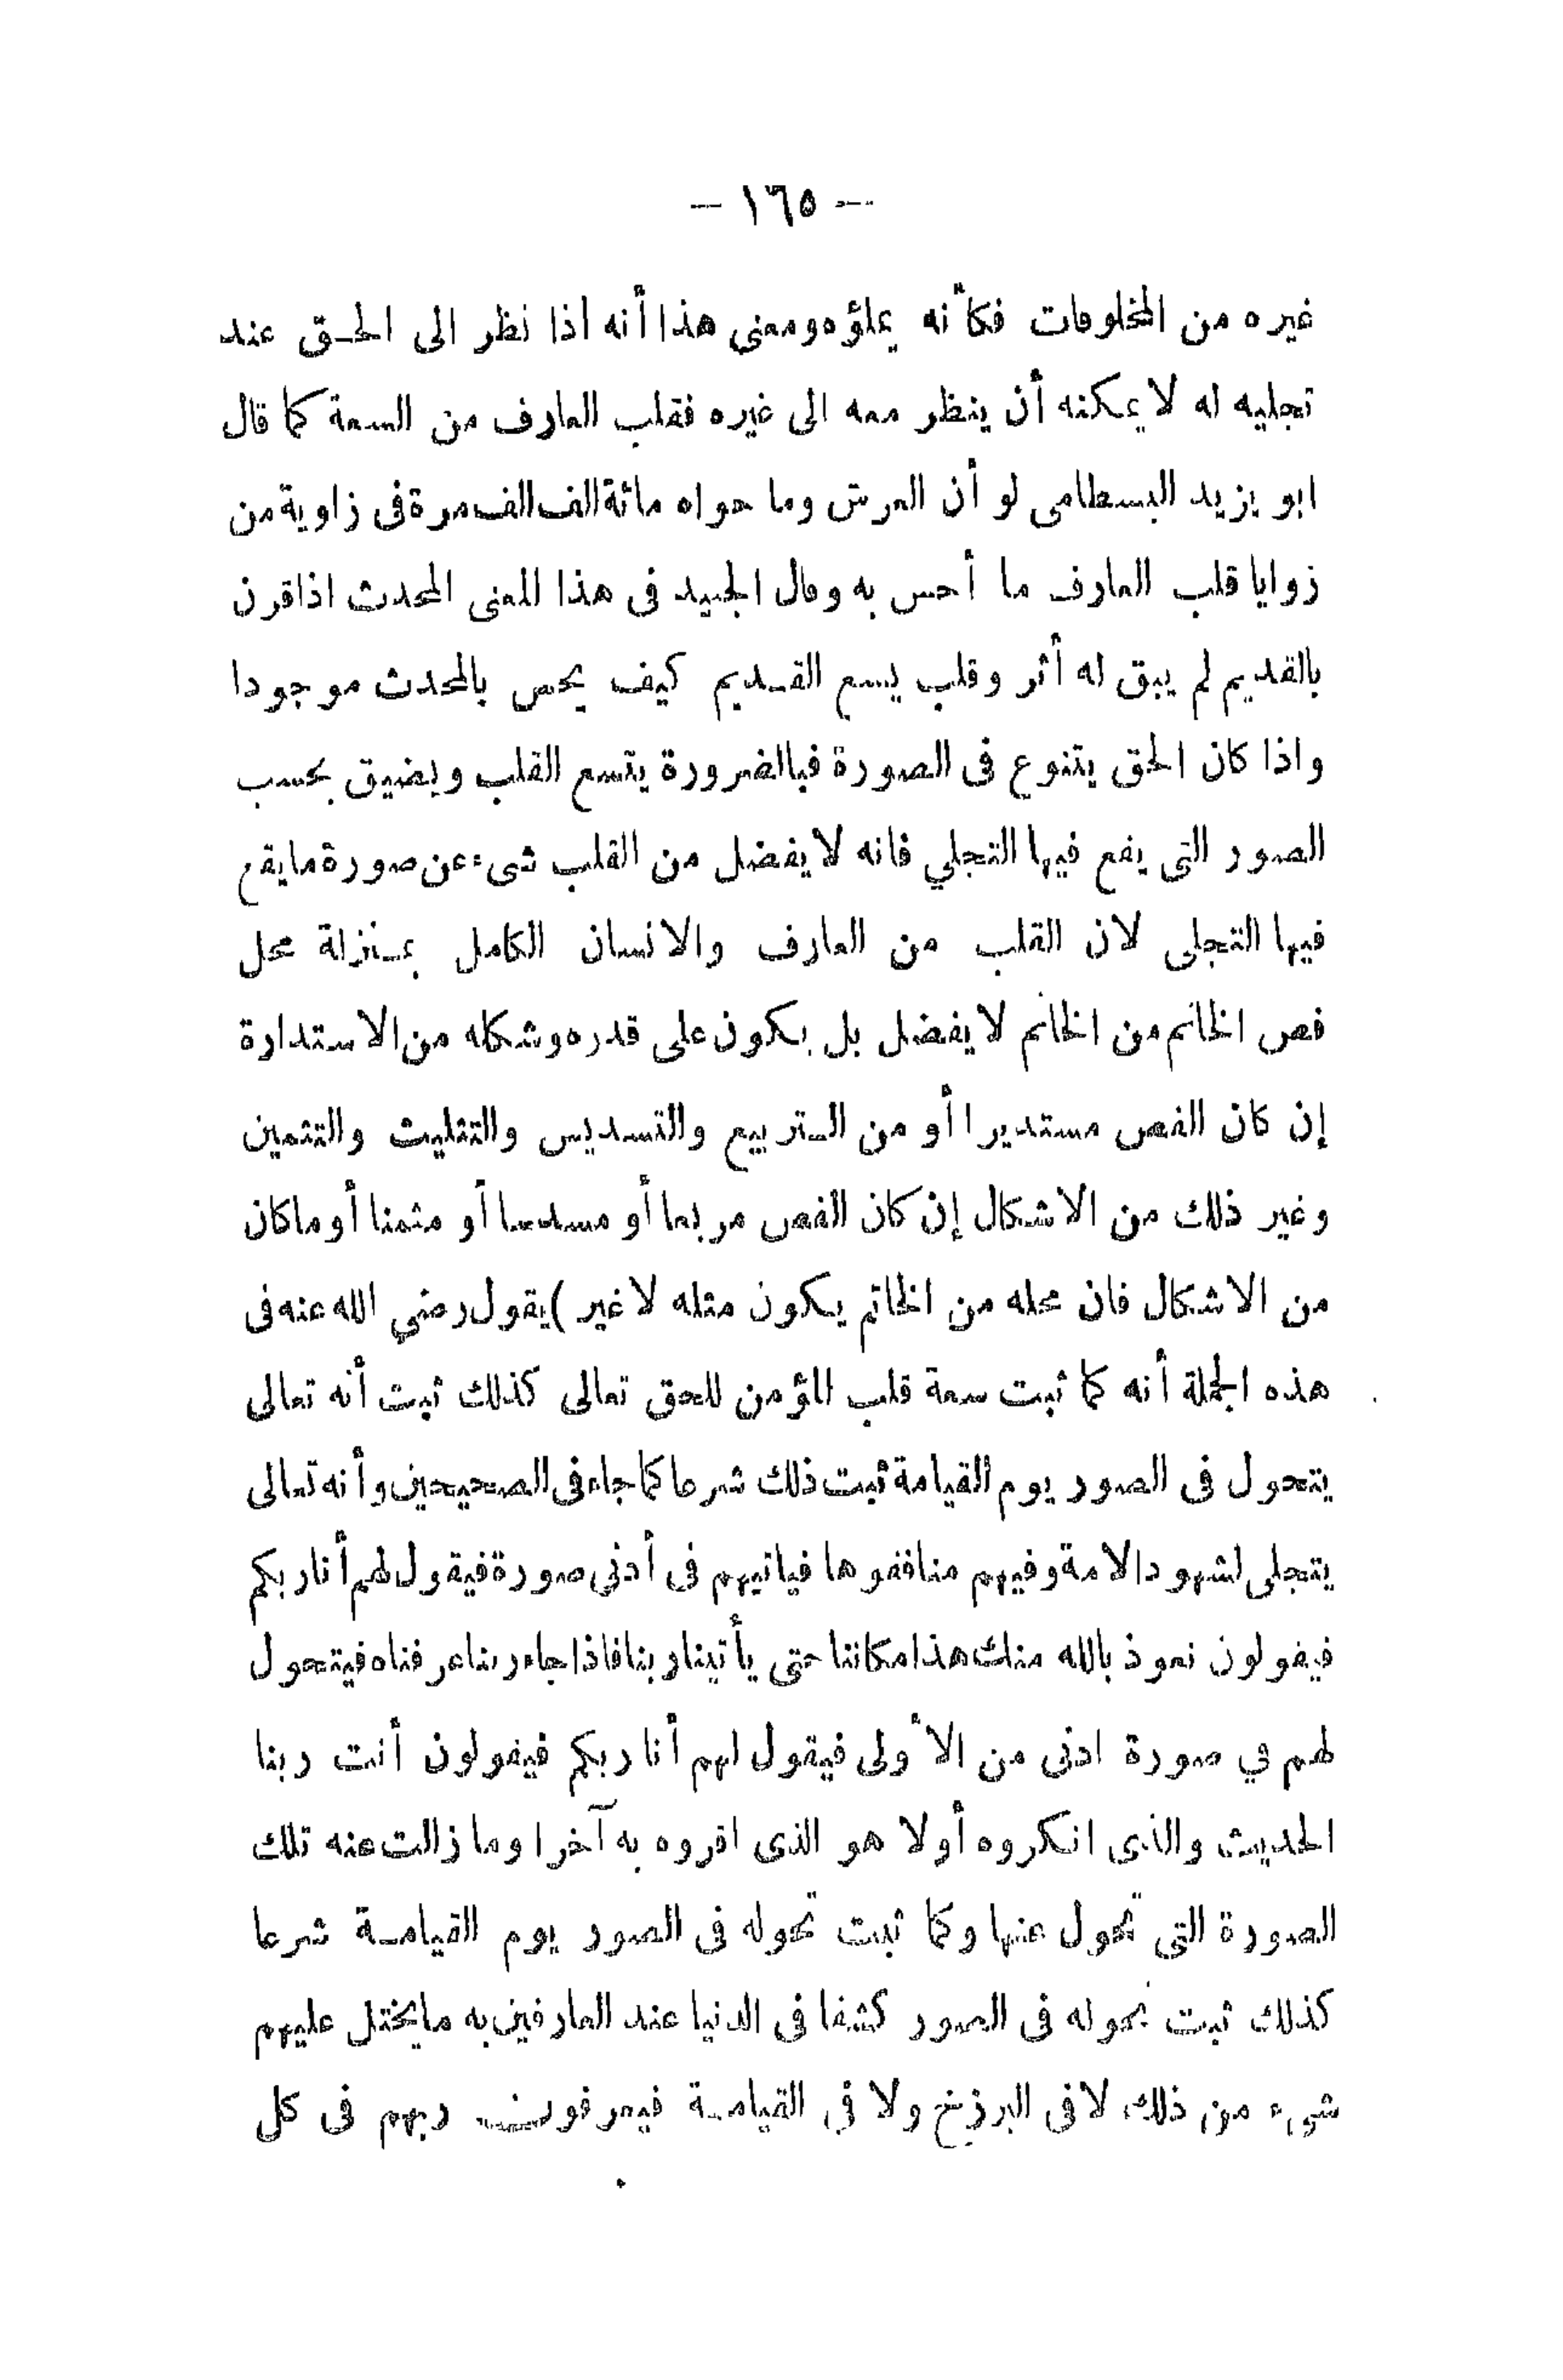 — ١٦٥ —
غيره من المخلوقات فكأنه يملؤه ومعنى هذا أنه اذا نظر الى الحق عند
تجليه له لا يمكنه أن ينظر معه الى غيره فقلب العارف من السعة كما قال
ابو يزيد البسطامى لو أن العرش وما حواه مائة الف الف مرة فى زاوية من
زوايا قلب العارف ما أحس به وقال الجنيد فى هذا المعنى المحدث اذا قرن
بالقديم لم يبق له أثر وقلب يسع القديم كيف يحس بالمحدث موجودا
واذا كان الحق يتنوع فى الصورة فبالضرورة يتسع القلب ويضيق بحسب
الصور التى يقع فيها التجلي فانه لا يفضل من القلب شىء عن صورة ما يقع
فيها التجلى لان القلب من العارف والانسان الكامل بمنزلة محل
فص الخاتم من الخاتم لا يفضل بل يكون على قدره وشكله من الاستدارة
إن كان الفص مستديرا أو من التربيع والتسديس والتثليث والتثمين
وغير ذلك من الاشكال إن كان الفص مربعا أو مسدسا أو مثمنا أو ما كان
من الاشكال فان محله من الخاتم يكون مثله لا غير ) يقول رضي الله عنه فى
هذه الجملة أنه كما ثبت سعة قلب المؤمن للحق تعالى كذلك ثبت أنه تعالى
يتحول فى الصور يوم القيامة ثبت ذلك شرعا كما جاء فى الصحيحين وأنه تعالى
يتجلى لشهود الامة وفيهم منافقوها فياتيهم فى أدنى صورة فيقول لهم أنا ربكم
فيقولون نعوذ بالله منك هذا مكاننا حتى يأتينا ربنا فاذا جاء ربنا عرفناه فيتحول
لهم في صورة ادنى من الأولى فيقول لهم أنا ربكم فيقولون أنت ربنا
الحديث والذى انكروه أولا هو الذى اقروه به آخرا وما زالت عنه تلك
الصورة التى تحول عنها وكما ثبت تحوله فى الصور يوم القيامة شرعا
كذلك ثبت تحوله فى الصور كشفا فى الدنيا عند العارفين به ما يختل عليهم
شىء من ذلك لا فى البرزخ ولا فى القيامة فيعرفون ربهم فى كل